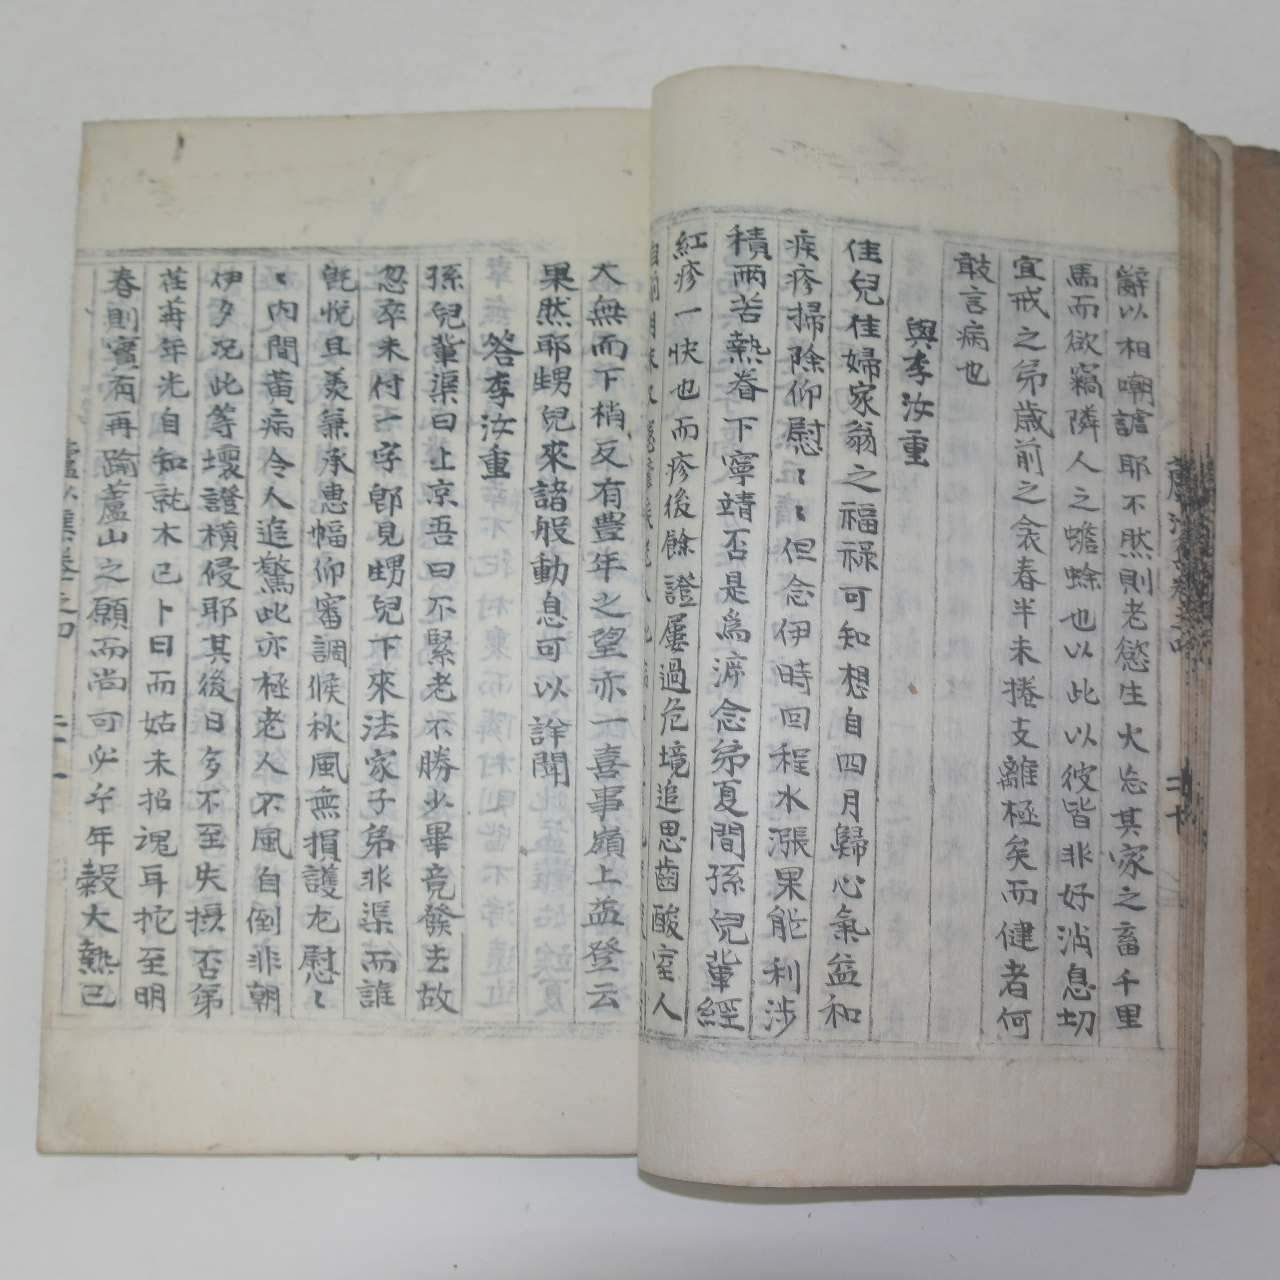 辭以相嘲謔耶不然則老慾生火忘其家之畜千里
馬而欲竊隣人之蟾蜍也以此以彼皆非好消息切
宜戒之弟歲前之衾春半未捲支離極矣而健者何
敢言病也
與李汝重
佳兒佳婦家翁之福祿可知想自四月歸心氣益和
疾疹掃除仰慰〻〻但念伊時回程水漲果能利涉
積雨苦熱眷下寧靖否是爲溯念弟夏間孫兒輩經
紅疹一快也而疹後餘證屢過危境追思齒酸室人
大無而下梢反有豊年之望亦一喜事嶺上益登云
果然耶甥兒來諸般動息可以詳聞
答李汝重
孫兒輩渠曰上凉吾曰不緊老不勝少畢竟發去故
忽卒未付一字郞見甥兒下來法家子弟非渠而誰
旣悅且羨兼承惠幅仰審調候秋風無損護尤慰〻
〻內間黃病令人追驚此亦極老人不風自倒非朝
伊夕況此等壞證橫侵耶其後日多不至失攝否弟
荏苒年光自知就木已卜日而姑未招魂耳抱至明
春則實兩再踰蘆山之願而尚可必乎年穀大熱已
蘆沙集卷之四
二十一
二十